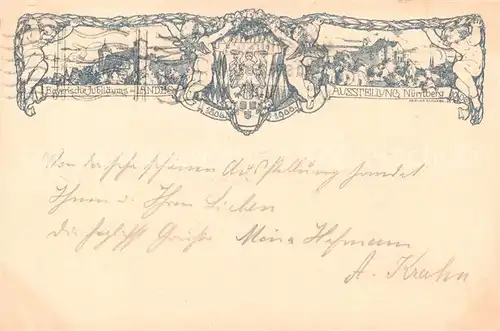 Bayerische Jubiläums-LANDES-
AUSSTELLUNG Nürnberg
1806 1906
Von der sehr schönen Ausstellung sendet
Ihnen u. Ihren Lieben
die herzlichst Grüße Hofmann
A. Krahn